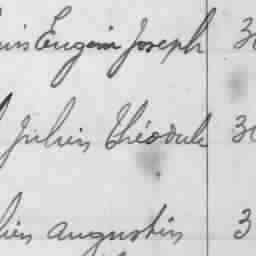 uis Eugène Joseph 30
Julien Théodule 30
lien Augustin 3